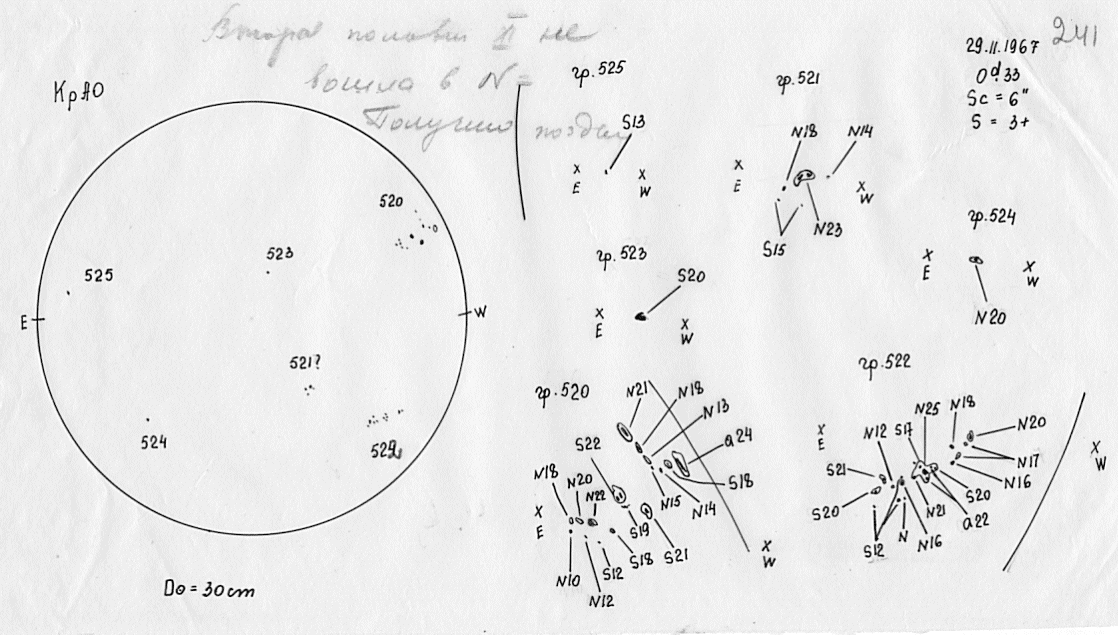 Вторая половина XI не
вошла в N=
Получено поздно
241
29.11.1967
0d.33
Sc = 6"
S = 3+
КрАО
E
W
520
523
525
521?
524
522
D⊙ = 30cm
гр.525
S13
X
E
X
W
гр.521
N18
N14
X
E
X
W
S15
N23
гр.523
S20
X
E
X
W
гр.524
X
E
X
W
N20
гр.520
N21
N18
N13
a24
S22
N18
N20
N22
S18
N15
N14
X
E
S19
S21
S18
S12
N10
N12
X
W
гр.522
N25
N18
N20
X
E
N12
S17
S21
N17
N16
S20
S20
a22
N21
S12
N
N16
X
W